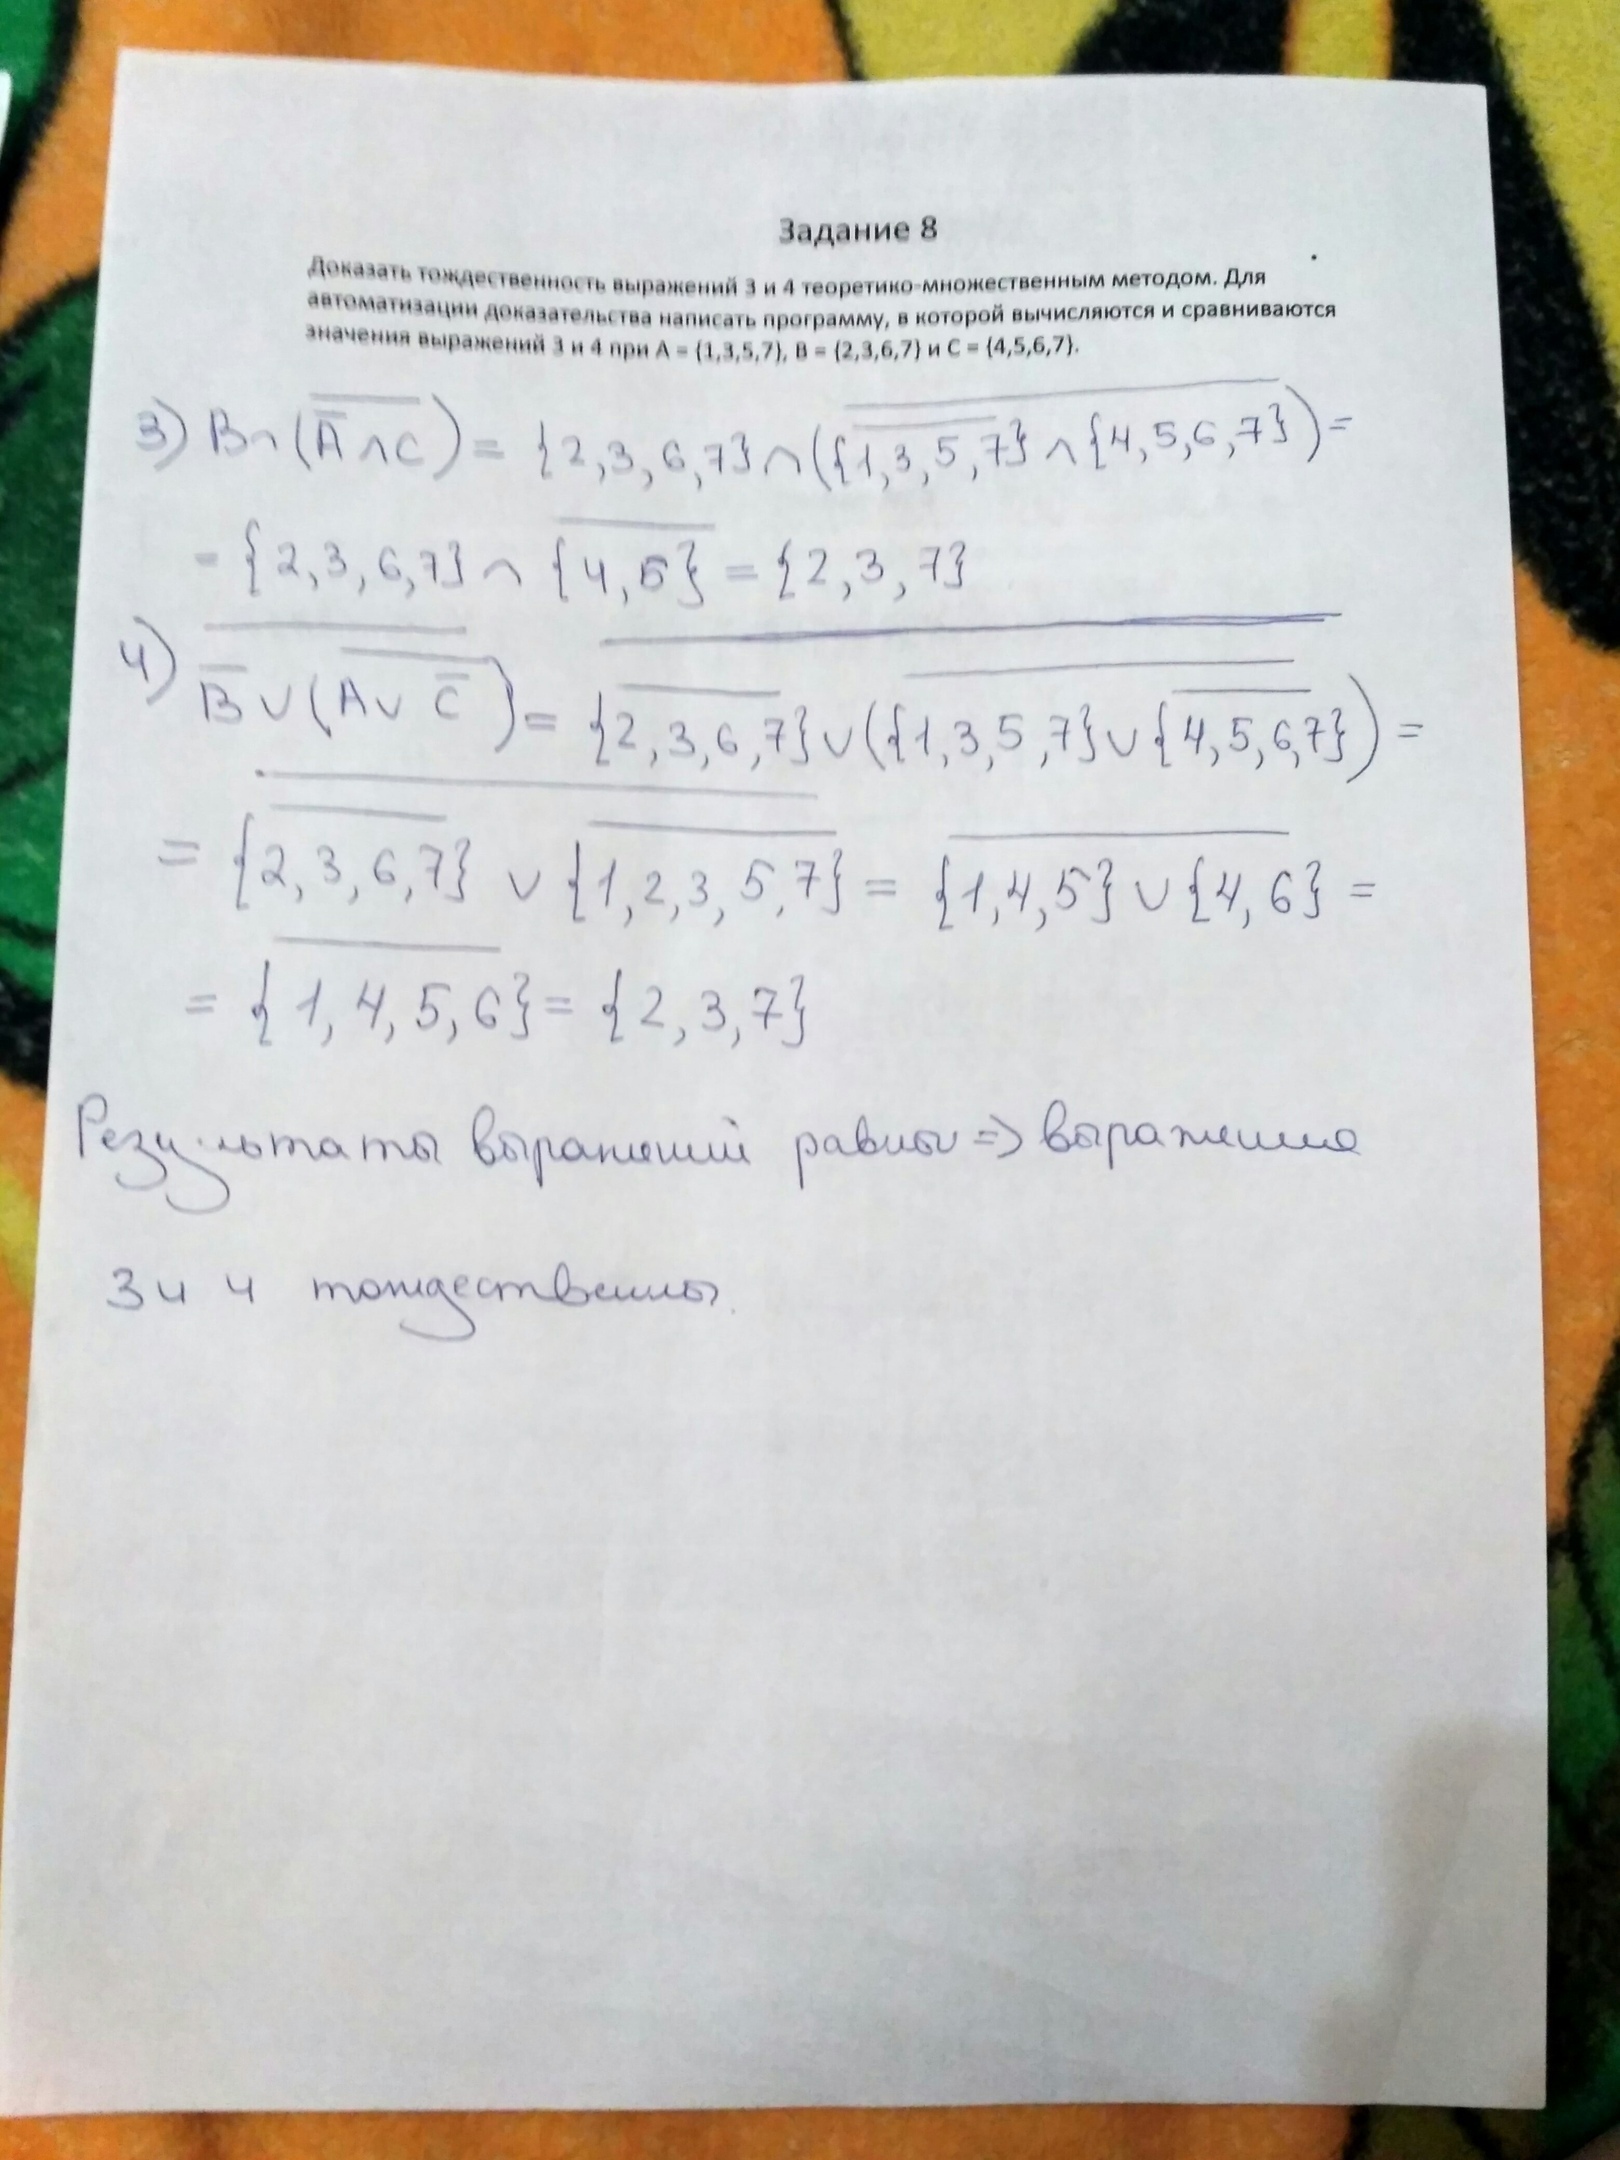 Задание 8
Доказать тождественность выражений 3 и 4 теоретико-множественным методом. Для
автоматизации доказательства написать программу, в которой вычисляются и сравниваются
значения выражений 3 и 4 при A = {1,3,5,7}, B = {2,3,6,7} и C = {4,5,6,7}.
3) B∩(\overline{\overline{A}∩C}) = {2,3,6,7}∩(\overline{\overline{{1,3,5,7}}∩{4,5,6,7}}) =
= {2,3,6,7} ∩ \overline{{4,5}} = {2,3,7}
4) \overline{\overline{B}∪(\overline{A∪\overline{C}})} = \overline{\overline{{2,3,6,7}}∪(\overline{{1,3,5,7}∪\overline{{4,5,6,7}}})} =
= \overline{\overline{{2,3,6,7}} ∪ \overline{{1,2,3,5,7}}} = \overline{{1,4,5}∪{4,6}} =
= \overline{{1,4,5,6}} = {2,3,7}
Результаты выражений равны => выражения
3 и 4 тождественны.